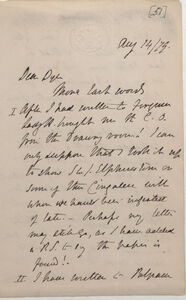 [57]
Aug 14/79.
Dear Dyer
More last words
I After I had written to Ferguson
Lady H. brought me the C.O.
from the drawing room! I can
only suppose that I took it up
to show Sir W. Elphinstone or
some of the Cingalese with
whom we have been infested
of late — Perhaps my letter
may still go, as I have added
a P.S. to say the paper is
found!.
II I have written to